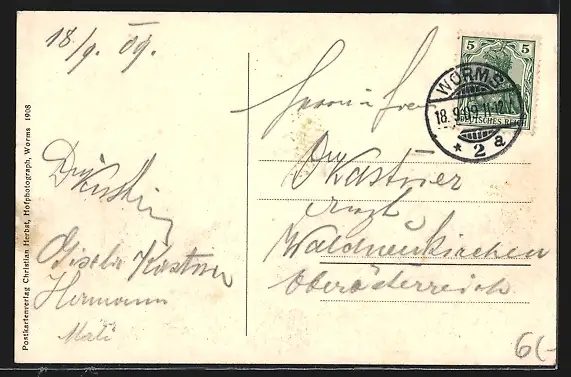 18/9. 09.
Herrn u Frau
Dr Kastner
Arzt
Waldneukirchen
Oberösterreich
Gisela Kastner
Hermann
Mali
Postkartenverlag Christian Herbst, Hofphotograph, Worms 1908
5 5
DEUTSCHES REICH
WORMS
18.9.09.11-12V.
* 2 a
6(-